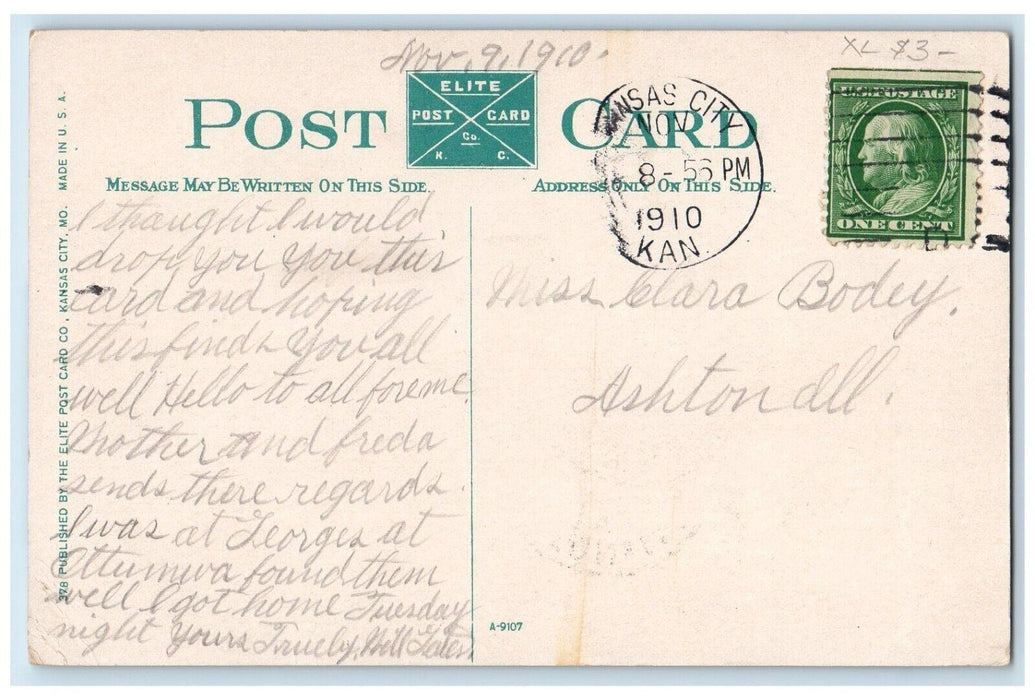 Nov. 9, 1910.
XL $3-
POST CARD
ELITE
POST CARD
Co.
K. C.
MESSAGE MAY BE WRITTEN ON THIS SIDE.
ADDRESS ONLY ON THIS SIDE.
NSAS CITY
NOV
8-56 PM
1910
KAN.
U.S. POSTAGE
ONE CENT
I thought I would
drop you you this
card and hoping
this finds you all
well Hello to all fore me
Mother and freda
sends there regards.
I was at Georges at
Ottumwa found them
well I got home Tuesday
night Yours Truely, Will
Miss Clara Bodey.
Ashton Ill.
378 PUBLISHED BY THE ELITE POST CARD CO., KANSAS CITY, MO. MADE IN U. S. A.
A-9107